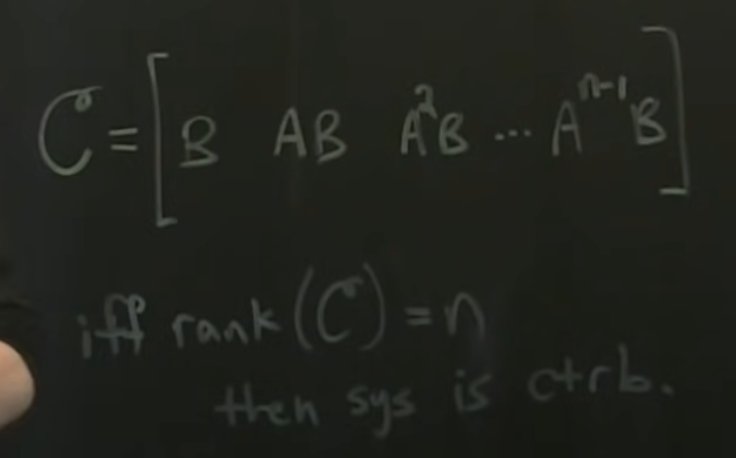 C = [ B AB A²B ... Aⁿ⁻¹B ]
iff rank (C) = n
then sys is ctrb.